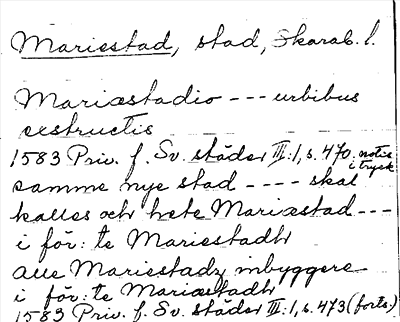 Mariestad, stad, Skarab. l.
Mariæstadio --- urbibus
restructis
1583 Priv. f. Sv. städer III:1, s. 470. notis i tryck
samme nye stad ---- skal
kalles och hete Mariæstad ---
i för: te Mariestadh
alle Mariestadz inbyggere
i för: te Mariæstadh
1583 Priv. f. Sv. städer III:1, s. 473 (forts.)